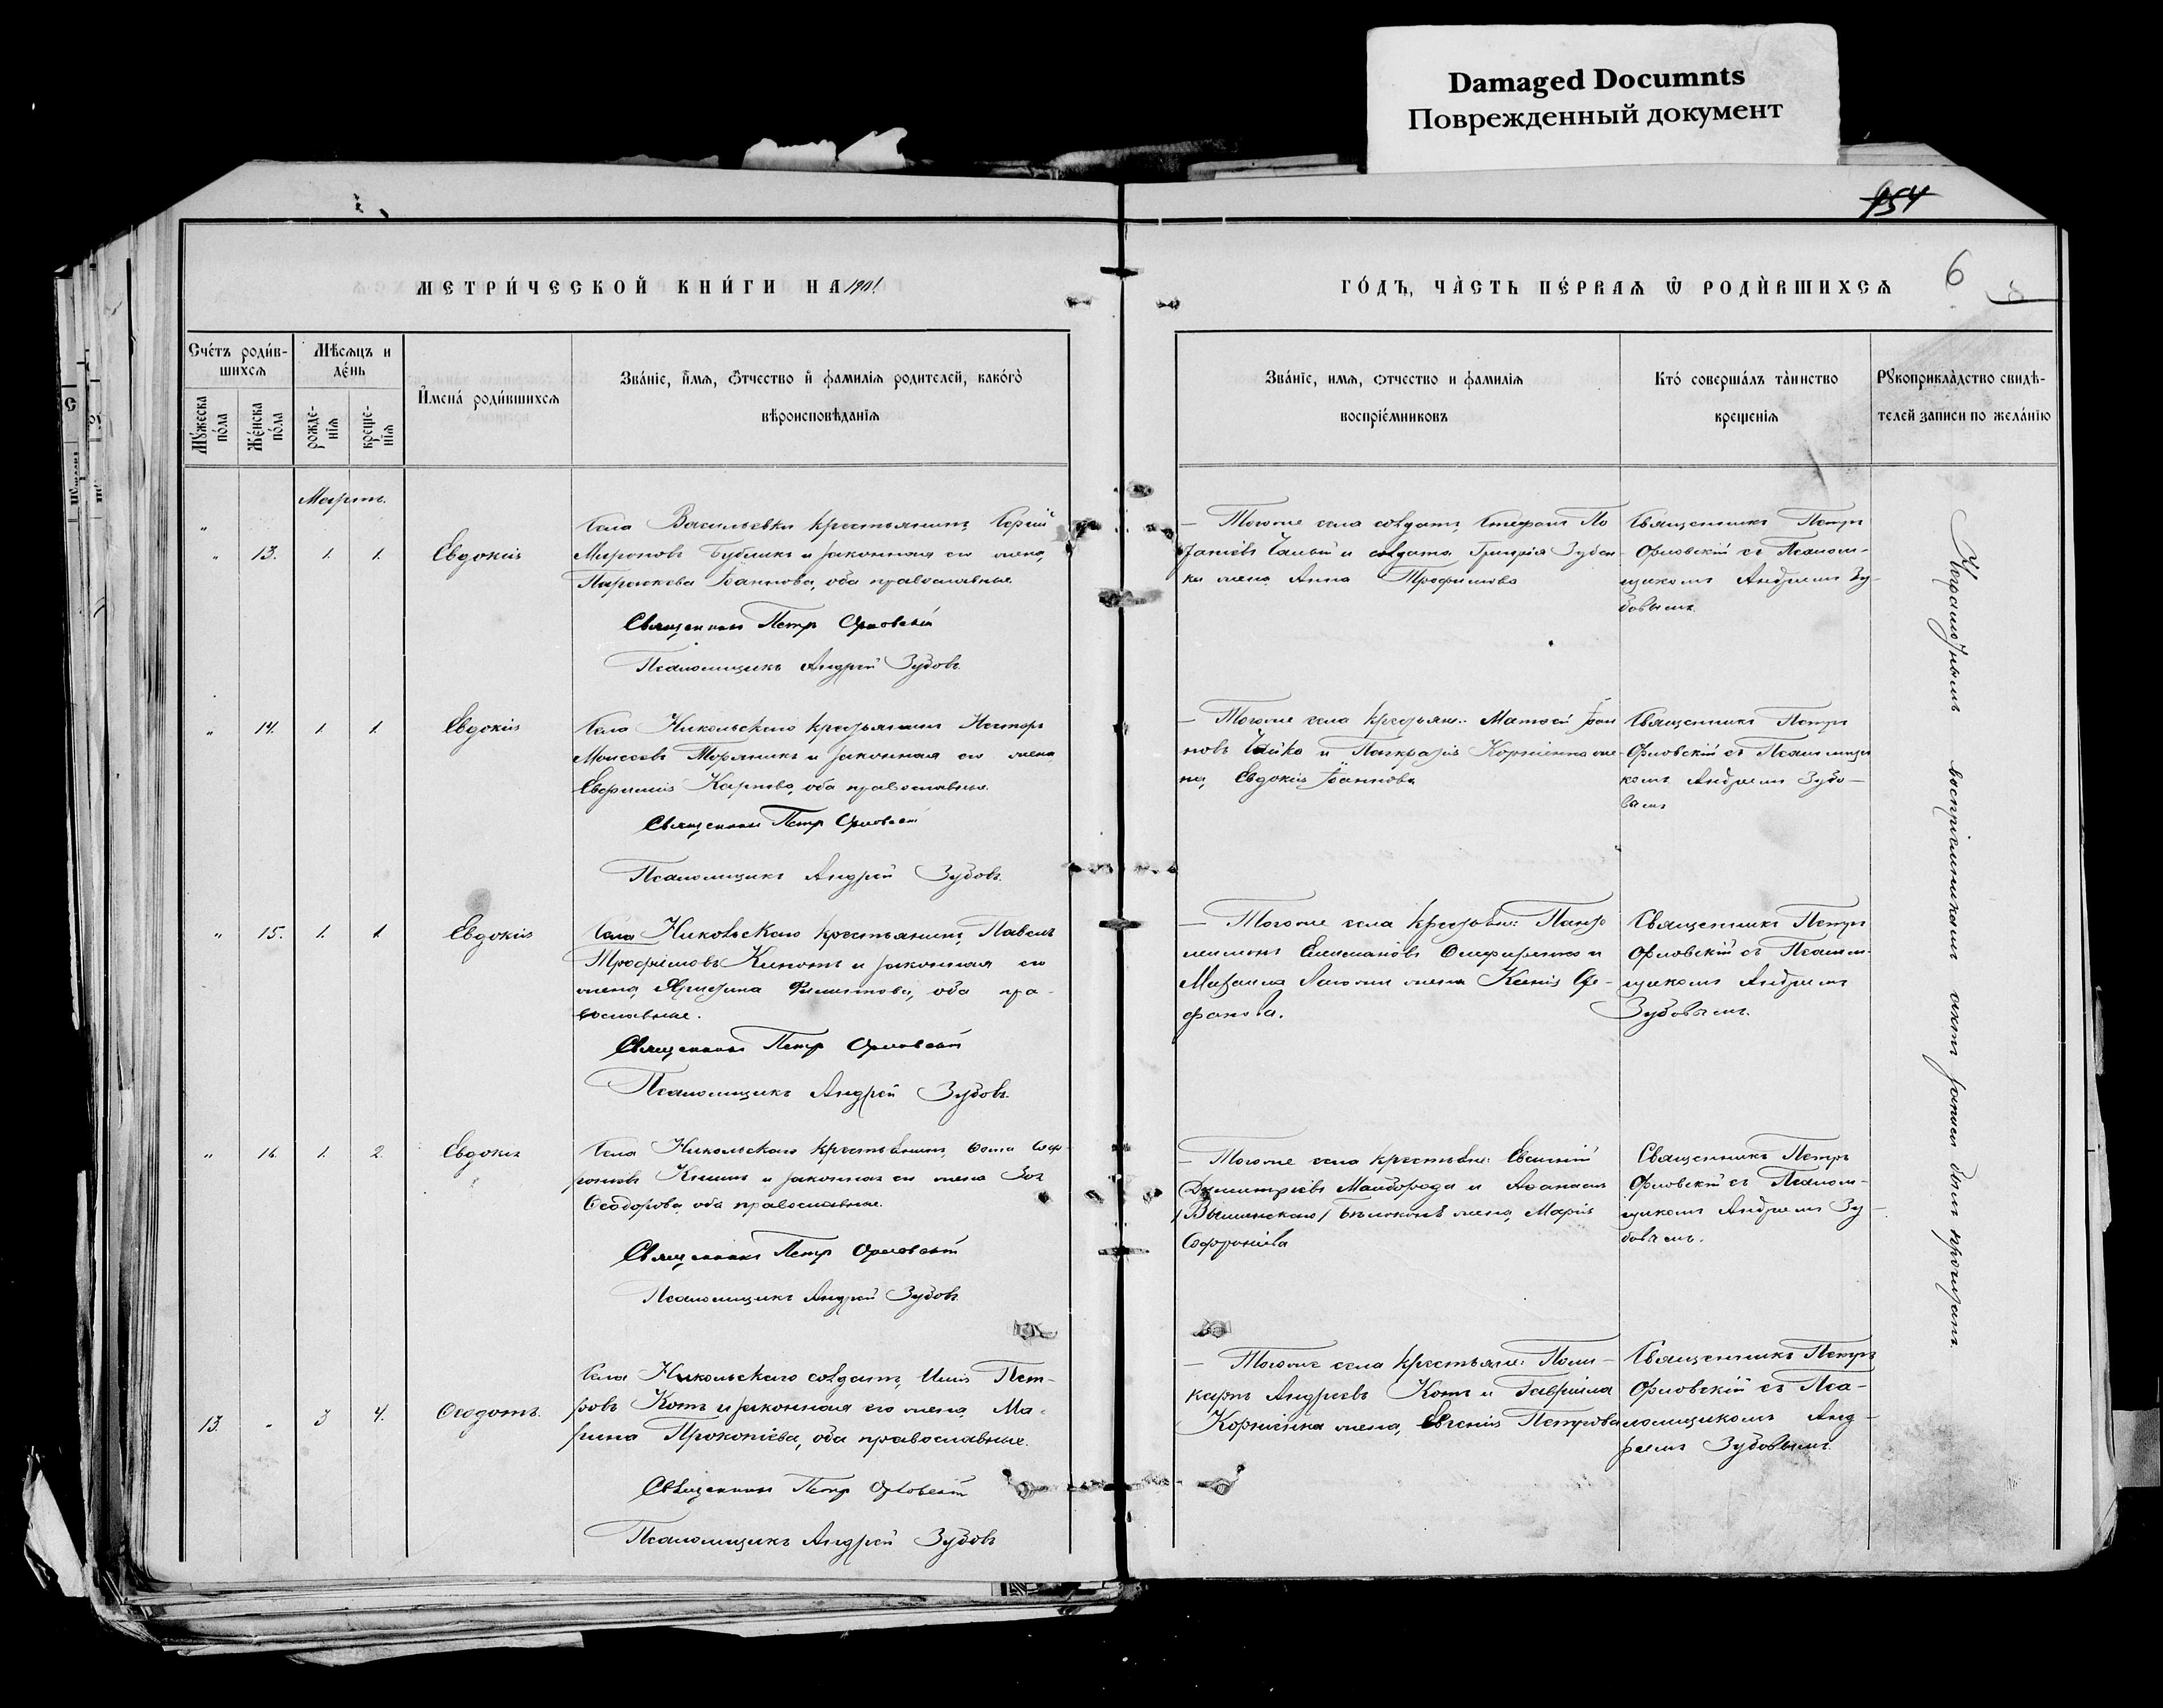 Damaged Documnts
Поврежденный документ
954
6
МЕТРИ́ЧЕСКОЙ КНИ́ГИ НА 1901.
ГО́ДЪ, ЧА́СТЬ ПЕ́РВАѦ Ѡ҆ РОДИ́ВШИХСѦ
Сче́тъ роди́в-
шихсѧ
Мѣсѧцъ и
де́нь
Мꙋ́жеска по́ла
Же́нска по́ла
рожде-
нїѧ
креще-
нїѧ
И҆мена́ роди́вшихсѧ
Зва́нїе, и҆́мѧ, ѻ҆́тчество и҆ фамилїѧ родителей, како́гѡ
вѣроисповѣданїѧ
Зва́нїе, имѧ, ѻтчество и фамилїѧ
воспрїе́мниковъ
Кто́ соверша́лъ та́инство
крещенїѧ
Рꙋкоприкла́дство свидѣ-
телей записи по жела́нїю
Мартъ.
" 13. 1. 1. Евдокія
Села Васильевки крестьянинъ Сергій
Мироновъ Бубликъ и законная его жена,
Параскева Іоаннова, оба православные
Священникъ Петръ Орловскій
Псаломщикъ Андрей Зубовъ.
— Тогоже села солдатъ, Стефанъ
и солдата Григорія
ки жена Анна Трофимова
Священникъ Петръ
Орловскій съ Псалом-
щикомъ Андреемъ Зу-
бовымъ.
" 14. 1. 1. Евдокія
Села Никольскаго крестьянинъ Несторъ
Моисеевъ Торяникъ и законная его жена
Евфимія Карпова, оба православные.
Священникъ Петръ Орловскій
Псаломщикъ Андрей Зубовъ.
— Тогоже села крестьян: Матвей Іоан
новъ Чайка и Панкратія Корніенка же-
на, Евдокія Іоаннова
Священникъ Петръ
Орловскій съ Псаломщи
комъ Андреемъ Зубо-
вымъ
" 15. 1. 1. Евдокія
Села Никольскаго крестьянинъ, Павелъ
Трофимовъ и законная его
жена, Филиппова, оба пра-
вославные.
Священникъ Петръ Орловскій
Псаломщикъ Андрей Зубовъ.
— Тогоже села крестьян:
и
Михаила жена Ксенія
фанова.
Священникъ Петръ
Орловскій съ Псалом-
щикомъ Андреемъ
Зубовымъ.
" 16. 1. 2. Евдокія
Села Никольскаго крестьянинъ, Ѳома Соф-
роновъ и законная его жена Зоя
Ѳеодорова, оба православные.
Священникъ Петръ Орловскій
Псаломщикъ Андрей Зубовъ.
— Тогоже села крестьяне: Евгеній
Димитріевъ Майборода и Аѳанасія
жена, Марія
Софроніева
Священникъ Петръ
Орловскій съ Псалом-
щикомъ Андреемъ Зу-
бовымъ.
13. " 3 4. Ѳеодотъ.
Села Никольскаго солдатъ, Илія Пет-
ровъ Котъ и законная его жена, Ма-
рина Прокопіева, оба православные.
Священникъ Петръ Орловскій
Псаломщикъ Андрей Зубовъ
— Тогоже села крестьяне: Поли-
карпъ Андреевъ Котъ и Гавріила
Корніенка жена, Евгенія Петрова
Священникъ Петръ
Орловскій съ Пса-
ломщикомъ Анд-
реемъ Зубовымъ.
Неграмотнымъ воспріемникамъ актъ записи былъ прочитанъ.